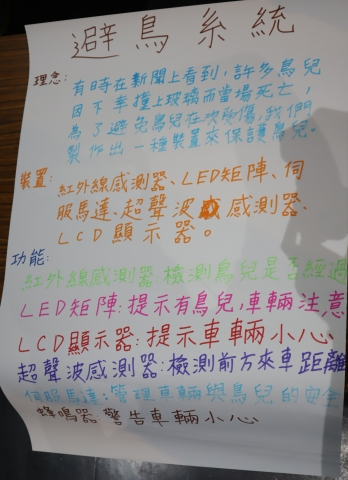 避鳥系統
理念：有時在新聞上看到，許多鳥兒
因不幸撞上玻璃而當場死亡，
為了避免鳥兒在次受傷，我們
製作出一種裝置來保護鳥兒。
裝置：紅外線感測器、LED矩陣、伺
服馬達、超聲波感測器、
LCD顯示器。
功能：
紅外線感測器：檢測鳥兒是否經過
LED矩陣：提示有鳥兒，車輛注意
LCD顯示器：提示車輛小心
超聲波感測器：檢測前方來車距離
伺服馬達：管理車輛與鳥兒的安全
蜂鳴器 警告車輛小心